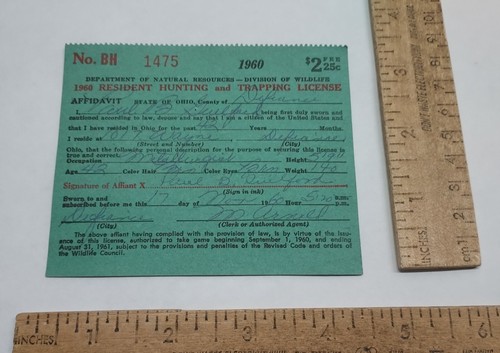 No. BH 1475 1960 $2 FEE 25c
DEPARTMENT OF NATURAL RESOURCES—DIVISION OF WILDLIFE
1960 RESIDENT HUNTING and TRAPPING LICENSE
AFFIDAVIT STATE OF OHIO, County of Defiance
I, being first duly sworn and
cautioned according to law, depose and say that I am a citizen of the United States and
that I have resided in Ohio for the past 42 Years Months.
I reside at Defiance
(Street and Number) (City)
Ohio, that the following personal description for the purpose of securing this license is
true and correct.
Occupation Metallurgist Height 5'9"
Age 42 Color Hair Color Eyes Weight
Signature of Affiant X
(Sign in ink)
Sworn to and
subscribed before me this 17 day of 196 Hour 5 p.m.
Defiance
(City) (Clerk or Authorized Agent)
The above affiant having complied with the provision of law, is by virtue of the issue
of this license, authorized to take game beginning September 1, 1960, and ending
August 31, 1961, subject to the provisions and penalties of the Revised Code and orders of
the Wildlife Council.
INCHES 1 2 3
INCHES 1 2 3 4 5 6